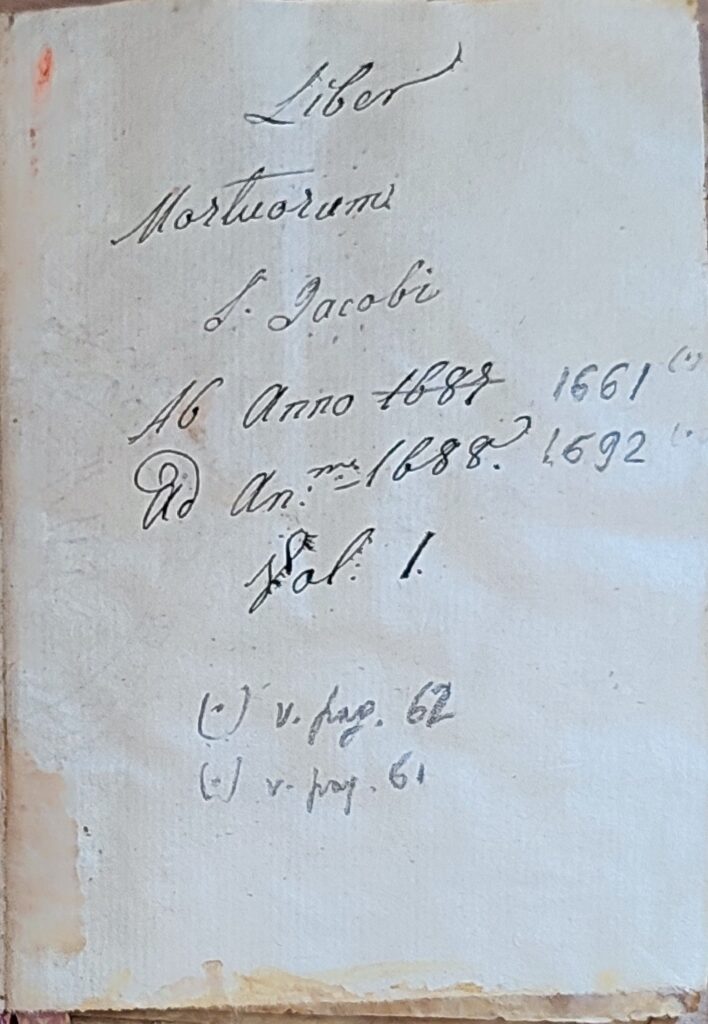 Liber
Mortuorum
S. Jacobi
Ab Anno 1687 1661 (·)
Ad An:mm 1688. 1692 (·
Vol: 1.
(·) v. pag. 62
(·) v. pag. 61